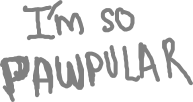 I'm so
PAWPULAR